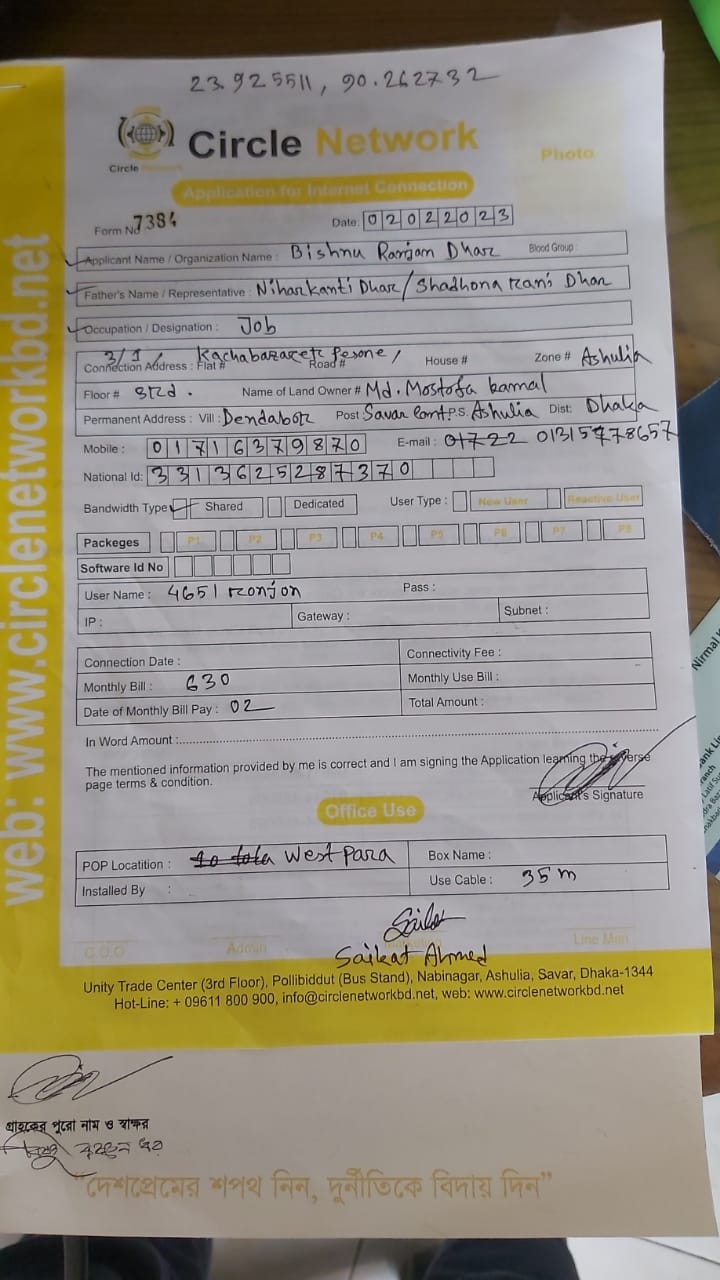 23.925511, 90.262732
Circle Network
Circle Network
Photo
Application for Internet Connection
Form No 7384
Date: 02022023
Applicant Name / Organization Name : Bishnu Ranjan Dhar Blood Group :
Father's Name / Representative : Niharkanti Dhar/Shadhona Rani Dhar
Occupation / Designation : Job
Connection Address : Flat # 3/1, Kachabazaret Road # House # Zone # Ashulia
Floor # 3rd. Name of Land Owner # Md. Mostofa kamal
Permanent Address : Vill : Dendabor Post Savar Cant P.S. Ashulia Dist: Dhaka
Mobile : 01716379870 E-mail : 01722
National Id: 3313625287370
Bandwidth Type Shared Dedicated User Type : New User Reactive User
Packeges P1 P2 P3 P4 P5 P6 P7 P8
Software Id No
User Name : 4651 ronjon Pass :
IP : Gateway : Subnet :
Connection Date : Connectivity Fee :
Monthly Bill : 630 Monthly Use Bill :
Date of Monthly Bill Pay : 02 Total Amount :
In Word Amount :
The mentioned information provided by me is correct and I am signing the Application learning the reverse
page terms & condition.
Applicant's Signature
Office Use
POP Locatition : West Para Box Name :
Installed By : Use Cable : 35m
Saikat Ahmed
C.O.O Admin Line Man
Unity Trade Center (3rd Floor), Pollibiddut (Bus Stand), Nabinagar, Ashulia, Savar, Dhaka-1344
Hot-Line: + 09611 800 900, info@circlenetworkbd.net, web: www.circlenetworkbd.net
web: www.circlenetworkbd.net
গ্রাহকের পুরো নাম ও স্বাক্ষর
"দেশপ্রেমের শপথ নিন, দুর্নীতিকে বিদায় দিন"
Nirmal